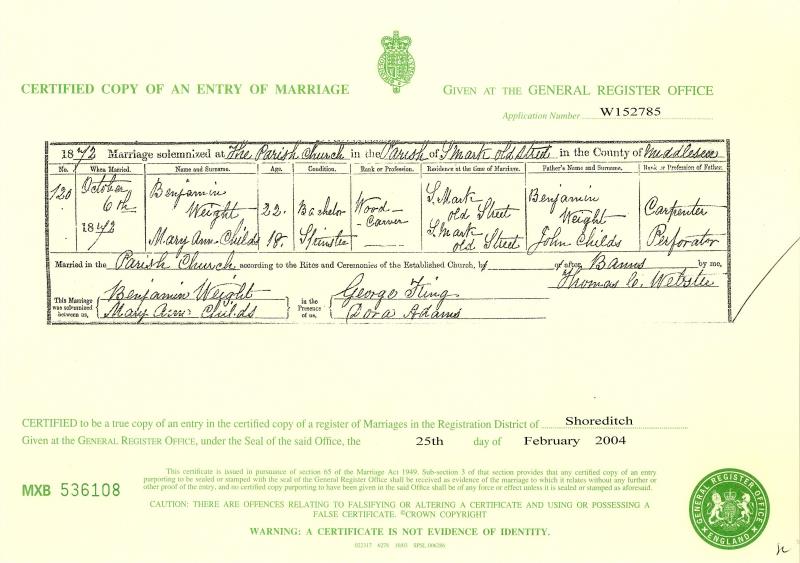 CERTIFIED COPY OF AN ENTRY OF MARRIAGE
GIVEN AT THE GENERAL REGISTER OFFICE
Application Number W152785
1872 Marriage solemnized at The Parish Church in the Parish of S. Mark old Street in the County of Middlesex
No. When Married. Name and Surname. Age. Condition. Rank or Profession. Residence at the time of Marriage. Father's Name and Surname. Rank or Profession of Father.
120 October 6th 1872
Benjamin Weight 22. Bachelor Wood-Carver S. Mark old Street Benjamin Weight Carpenter
Mary Ann Childs 18. Spinster S. Mark old Street John Childs Perforator
Married in the Parish Church according to the Rites and Ceremonies of the Established Church, by or after Banns by me,
Thomas C. Webster
This Marriage was solemnized between us, Benjamin Weight Mary Ann Childs in the Presence of us, George King Dora Adams
CERTIFIED to be a true copy of an entry in the certified copy of a register of Marriages in the Registration District of Shoreditch
Given at the GENERAL REGISTER OFFICE, under the Seal of the said Office, the 25th day of February 2004
MXB 536108
This certificate is issued in pursuance of section 65 of the Marriage Act 1949. Sub-section 3 of that section provides that any certified copy of an entry
purporting to be sealed or stamped with the seal of the General Register Office shall be received as evidence of the marriage to which it relates without any further or
other proof of the entry, and no certified copy purporting to have been given in the said Office shall be of any force or effect unless it is sealed or stamped as aforesaid.
CAUTION: THERE ARE OFFENCES RELATING TO FALSIFYING OR ALTERING A CERTIFICATE AND USING OR POSSESSING A
FALSE CERTIFICATE. ©CROWN COPYRIGHT
WARNING: A CERTIFICATE IS NOT EVIDENCE OF IDENTITY.
GENERAL REGISTER OFFICE
ENGLAND